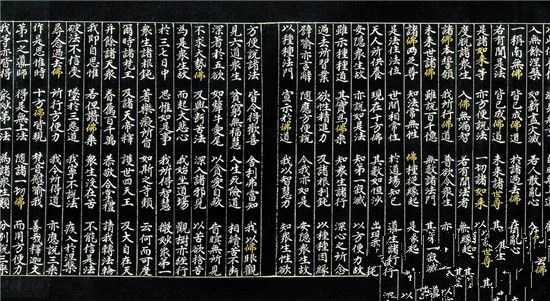 入無餘涅槃 如薪盡火滅 亂心
一稱南無佛 皆已成佛道 於諸過去佛
若有聞是法 皆已成佛道 未來諸世尊
是諸如來等 亦方便說法 一切諸如來
度脫諸眾生 入佛無漏智 若有聞法者
諸佛本誓願 我所行佛道 普欲令眾生
未來世諸佛 雖說百千億 無數諸法門
諸佛兩足尊 知法常無性 佛種從緣起
是法住法位 世間相常住 於道場知已
天人所供養 現在十方佛 其數如恒沙 出現
安隱眾生故 亦說如是法 知第一寂滅 以方便力故
雖示種種道 其實為佛乘 知眾生諸行 深心之所念
過去所習業 欲性精進力 及諸根利鈍 以種種因緣
譬喻亦言辭 隨應方便說 今我亦如是 安隱眾生故
以種種法門 宣示於佛道 我以智慧力 知眾生性欲
方便說諸法 皆令得歡喜 舍利弗當知 我以佛眼觀
見六道眾生 貧窮無福慧 入生死險道 相續苦不斷
深著於五欲 如犛牛愛尾 以貪愛自蔽 盲瞑無所見
不求大勢佛 及與斷苦法 深入諸邪見 以苦欲捨苦
為是眾生故 而起大悲心 我始坐道場 觀樹亦經行
於三七日中 思惟如是事 我所得智慧 微妙最第一
眾生諸根鈍 著樂癡所盲 如斯之等類 云何而可度
爾時諸梵王 及諸天帝釋 護世四天王 及大自在天
并餘諸天眾 眷屬百千萬 恭敬合掌禮 請我轉法輪
我即自思惟 若但讚佛乘 眾生沒在苦 不能信是法
破法不信故 墜於三惡道 我寧不說法 疾入於涅槃
尋念過去佛 所行方便力 我今所得道 亦應說三乘
作是思惟時 十方佛皆現 梵音慰喻我 善哉釋迦文
第一之導師 得是無上法 隨諸一切佛 而用方便力
我等亦皆得 最妙第一法 為諸眾生類 分別說三乘